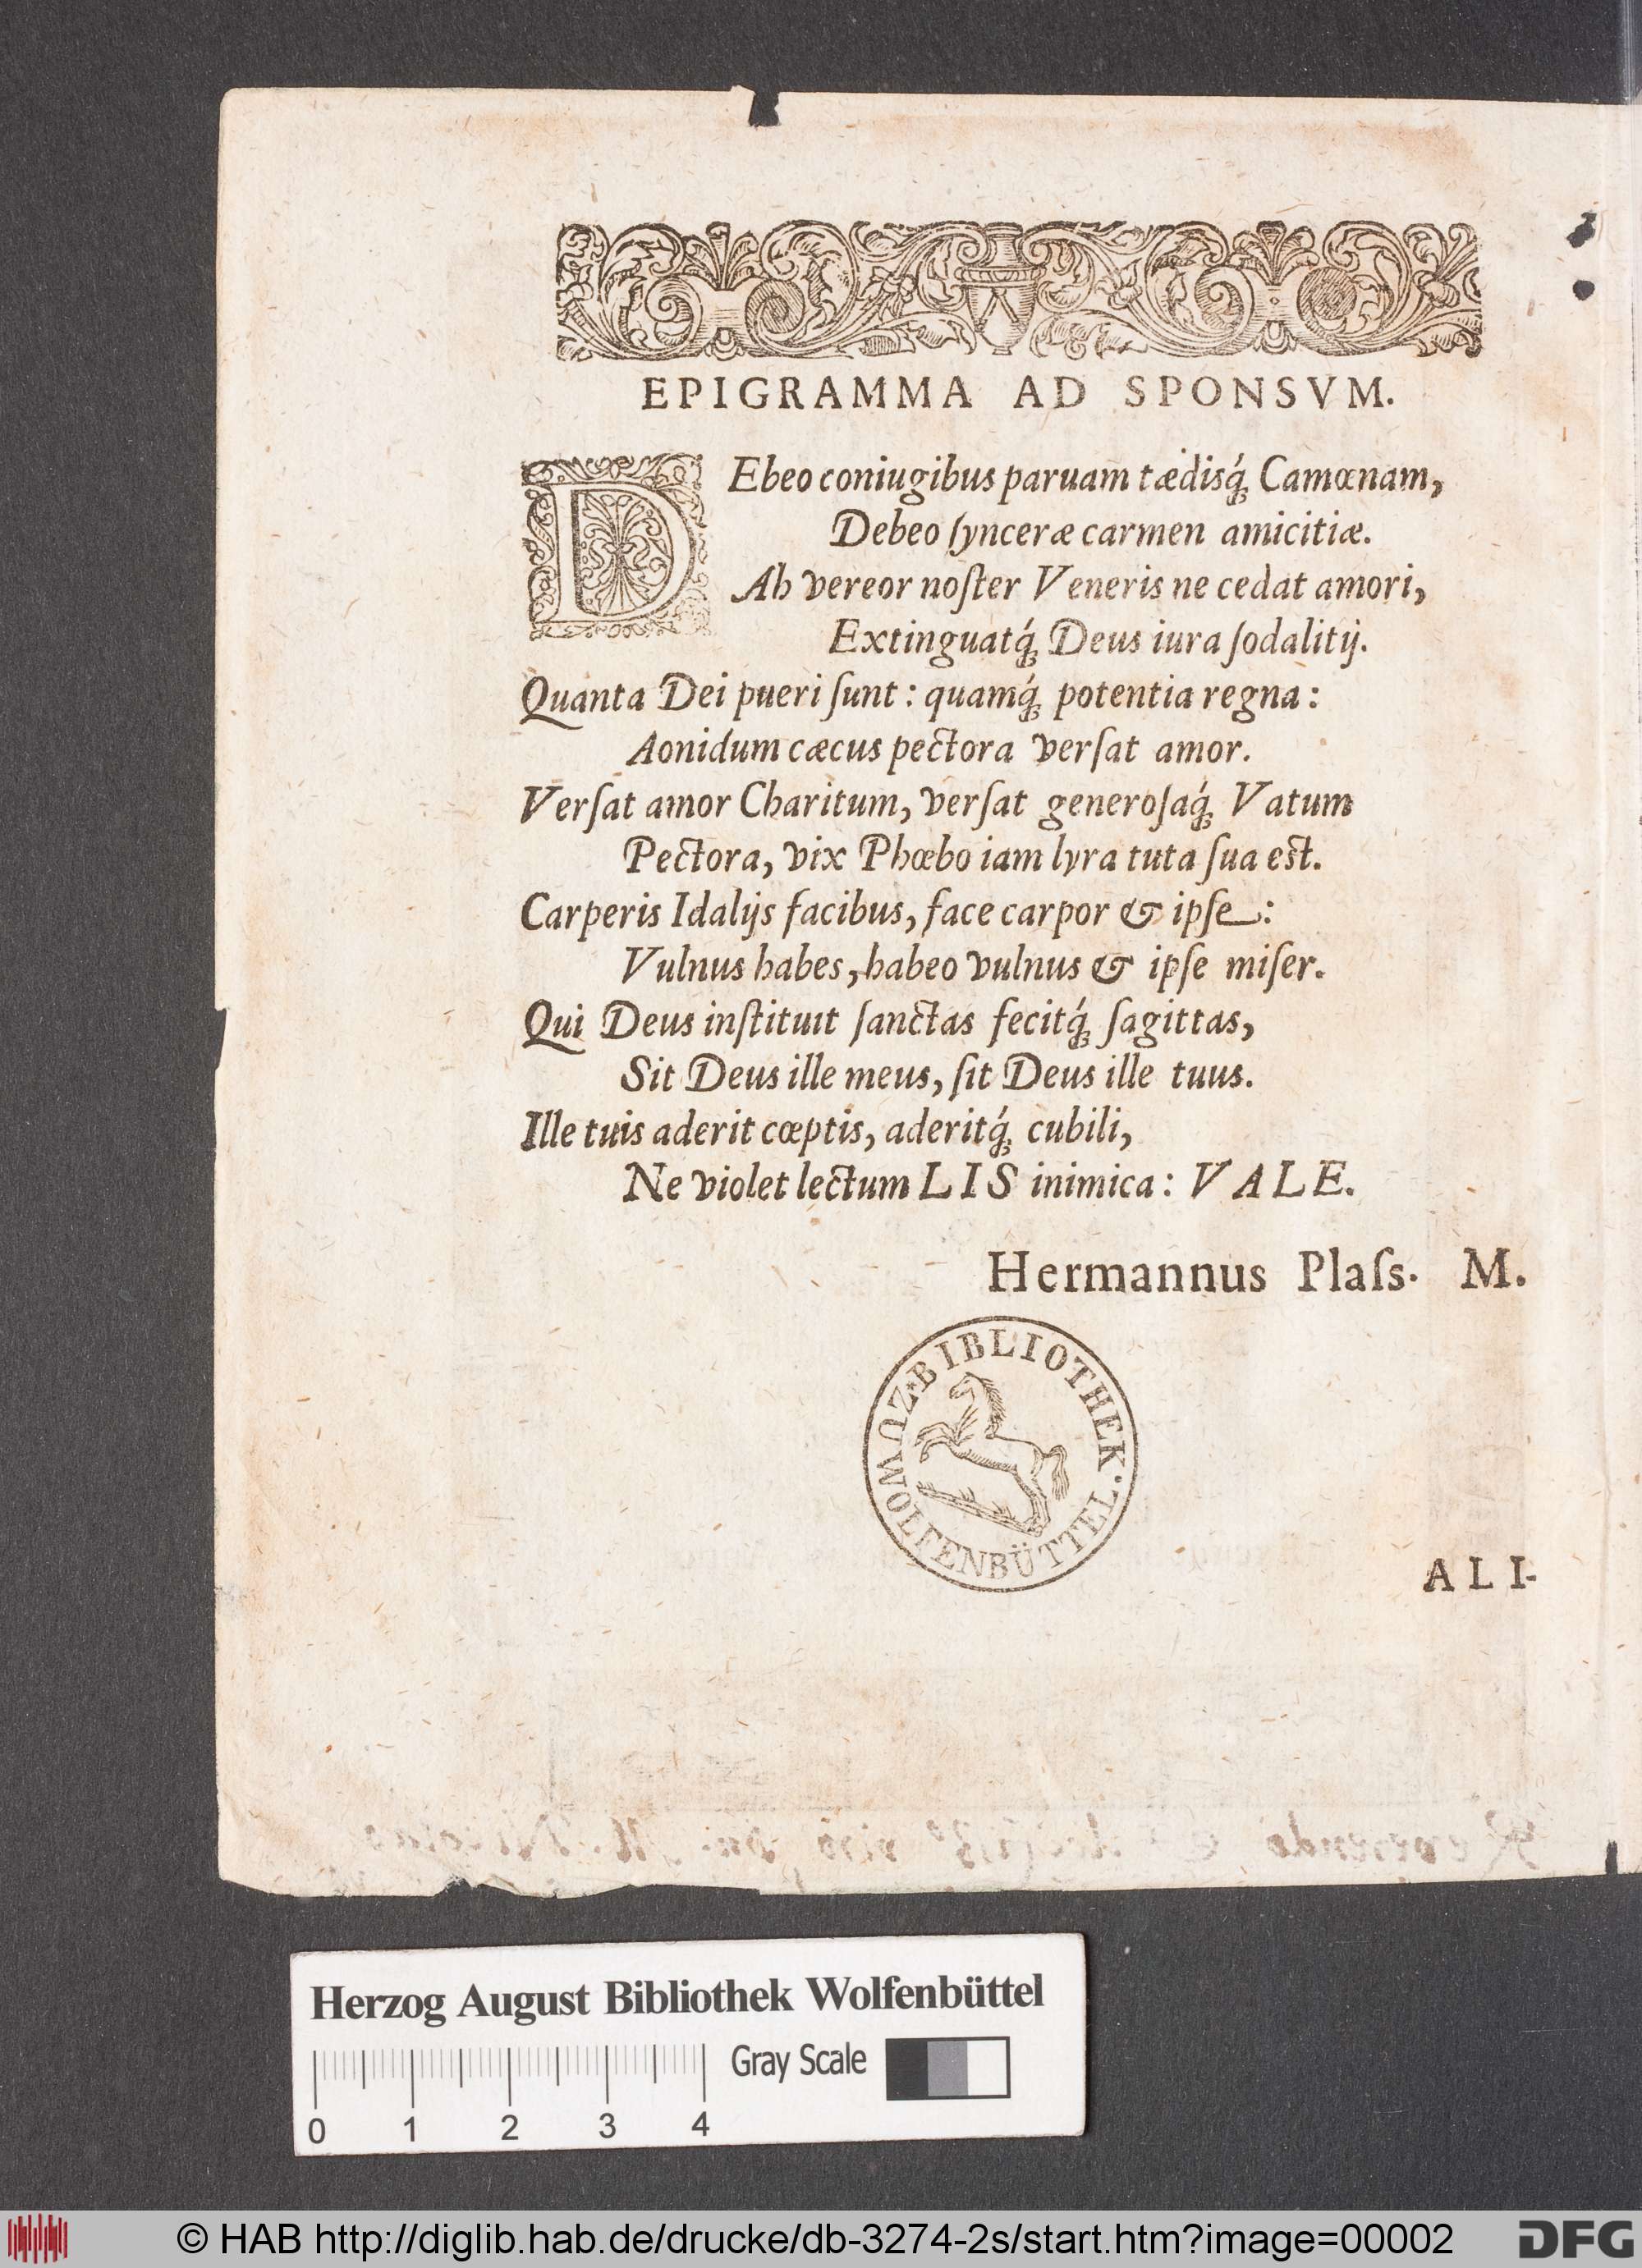 EPIGRAMMA AD SPONSVM.
DEbeo coniugibus paruam tædisq́ꝫ Camœnam,
Debeo ſynceræ carmen amicitiæ.
Ah vereor noſter Veneris ne cedat amori,
Extinguatq́ꝫ Deus iura ſodalitij.
Quanta Dei pueri ſunt: quamq́ꝫ potentia regna:
Aonidum cæcus pectora verſat amor.
Verſat amor Charitum, verſat generoſaq́ꝫ Vatum
Pectora, vix Phœbo iam lyra tuta ſua est.
Carperis Idalijs facibus, face carpor & ipſe:
Vulnus habes, habeo vulnus & ipſe miſer.
Qui Deus inſtituit ſanctas fecitq́ꝫ ſagittas,
Sit Deus ille meus, ſit Deus ille tuus.
Ille tuis aderit cœptis, aderitq́ꝫ cubili,
Ne violet lectum LIS inimica: VALE.
Hermannus Plaſs. M.
BIBLIOTHEK · WOLFENBÜTTEL
ZU
ALI-
Herzog August Bibliothek Wolfenbüttel
Gray Scale
0 1 2 3 4
© HAB http://diglib.hab.de/drucke/db-3274-2s/start.htm?image=00002
DFG